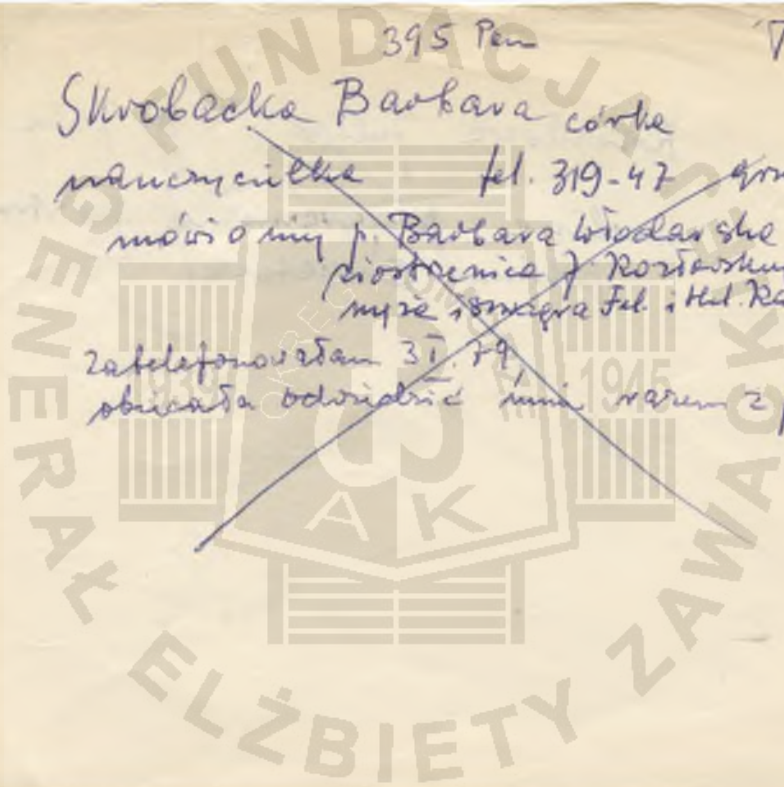 395 Pom
Skrobacka Barbara córka
nauczycielka tel. 319-47
mówi o niej p. Barbara Włodarska
siostrzenica J.
męża i szwagra Fel. i Hel.
Zatelefonowałam 3 I. 79,
obiecała odwiedzić mnie razem z p
FUNDACJA
GENERAŁ ELŻBIETY ZAWACKIEJ
1939 1945
AK